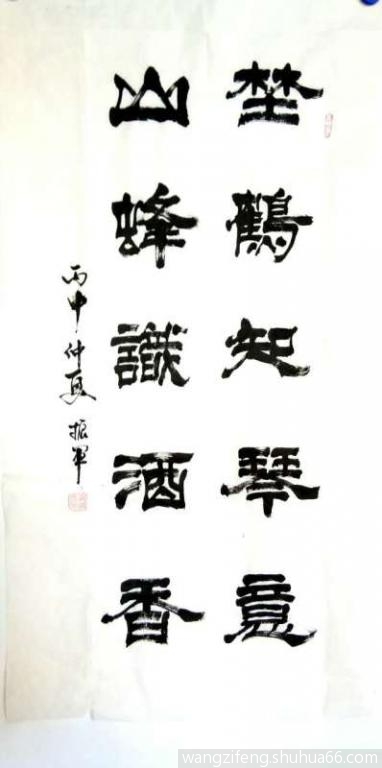 埜鶴知琴意
山蜂識酒香
丙申仲夏 振軍
wangzifeng.shuhua66.com